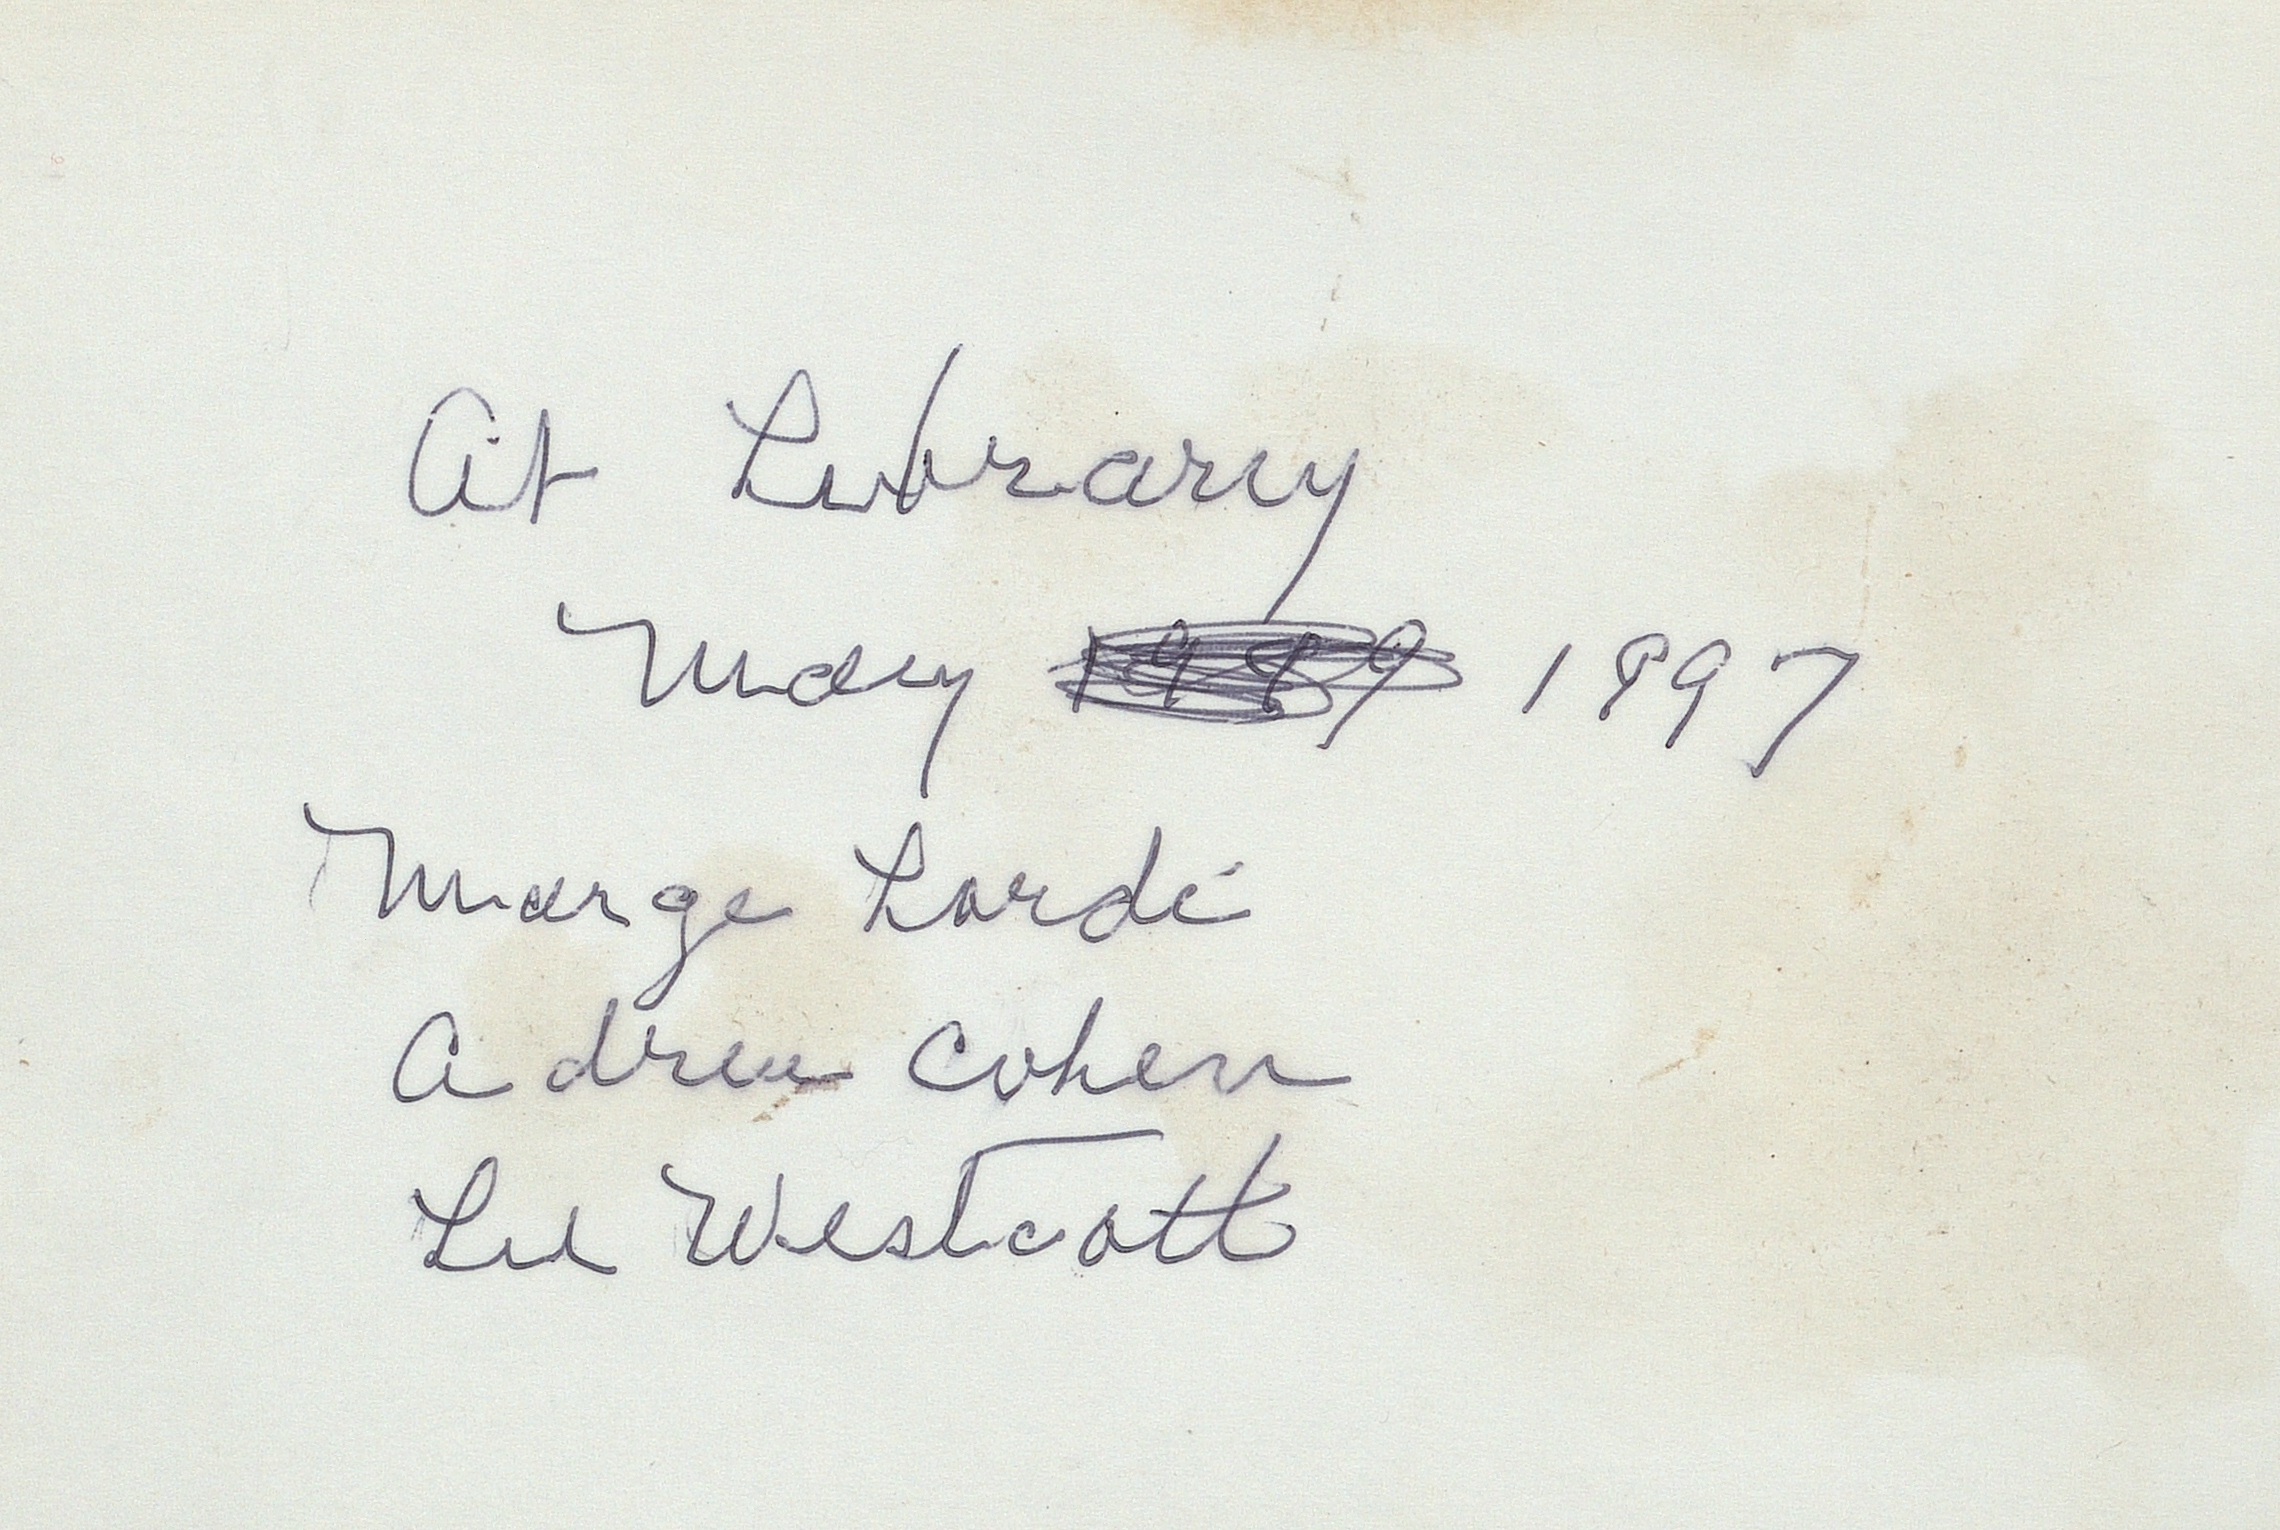 At Library
May 1989 1997
Marge Lordi
Adree Cohen
Lee Westcott